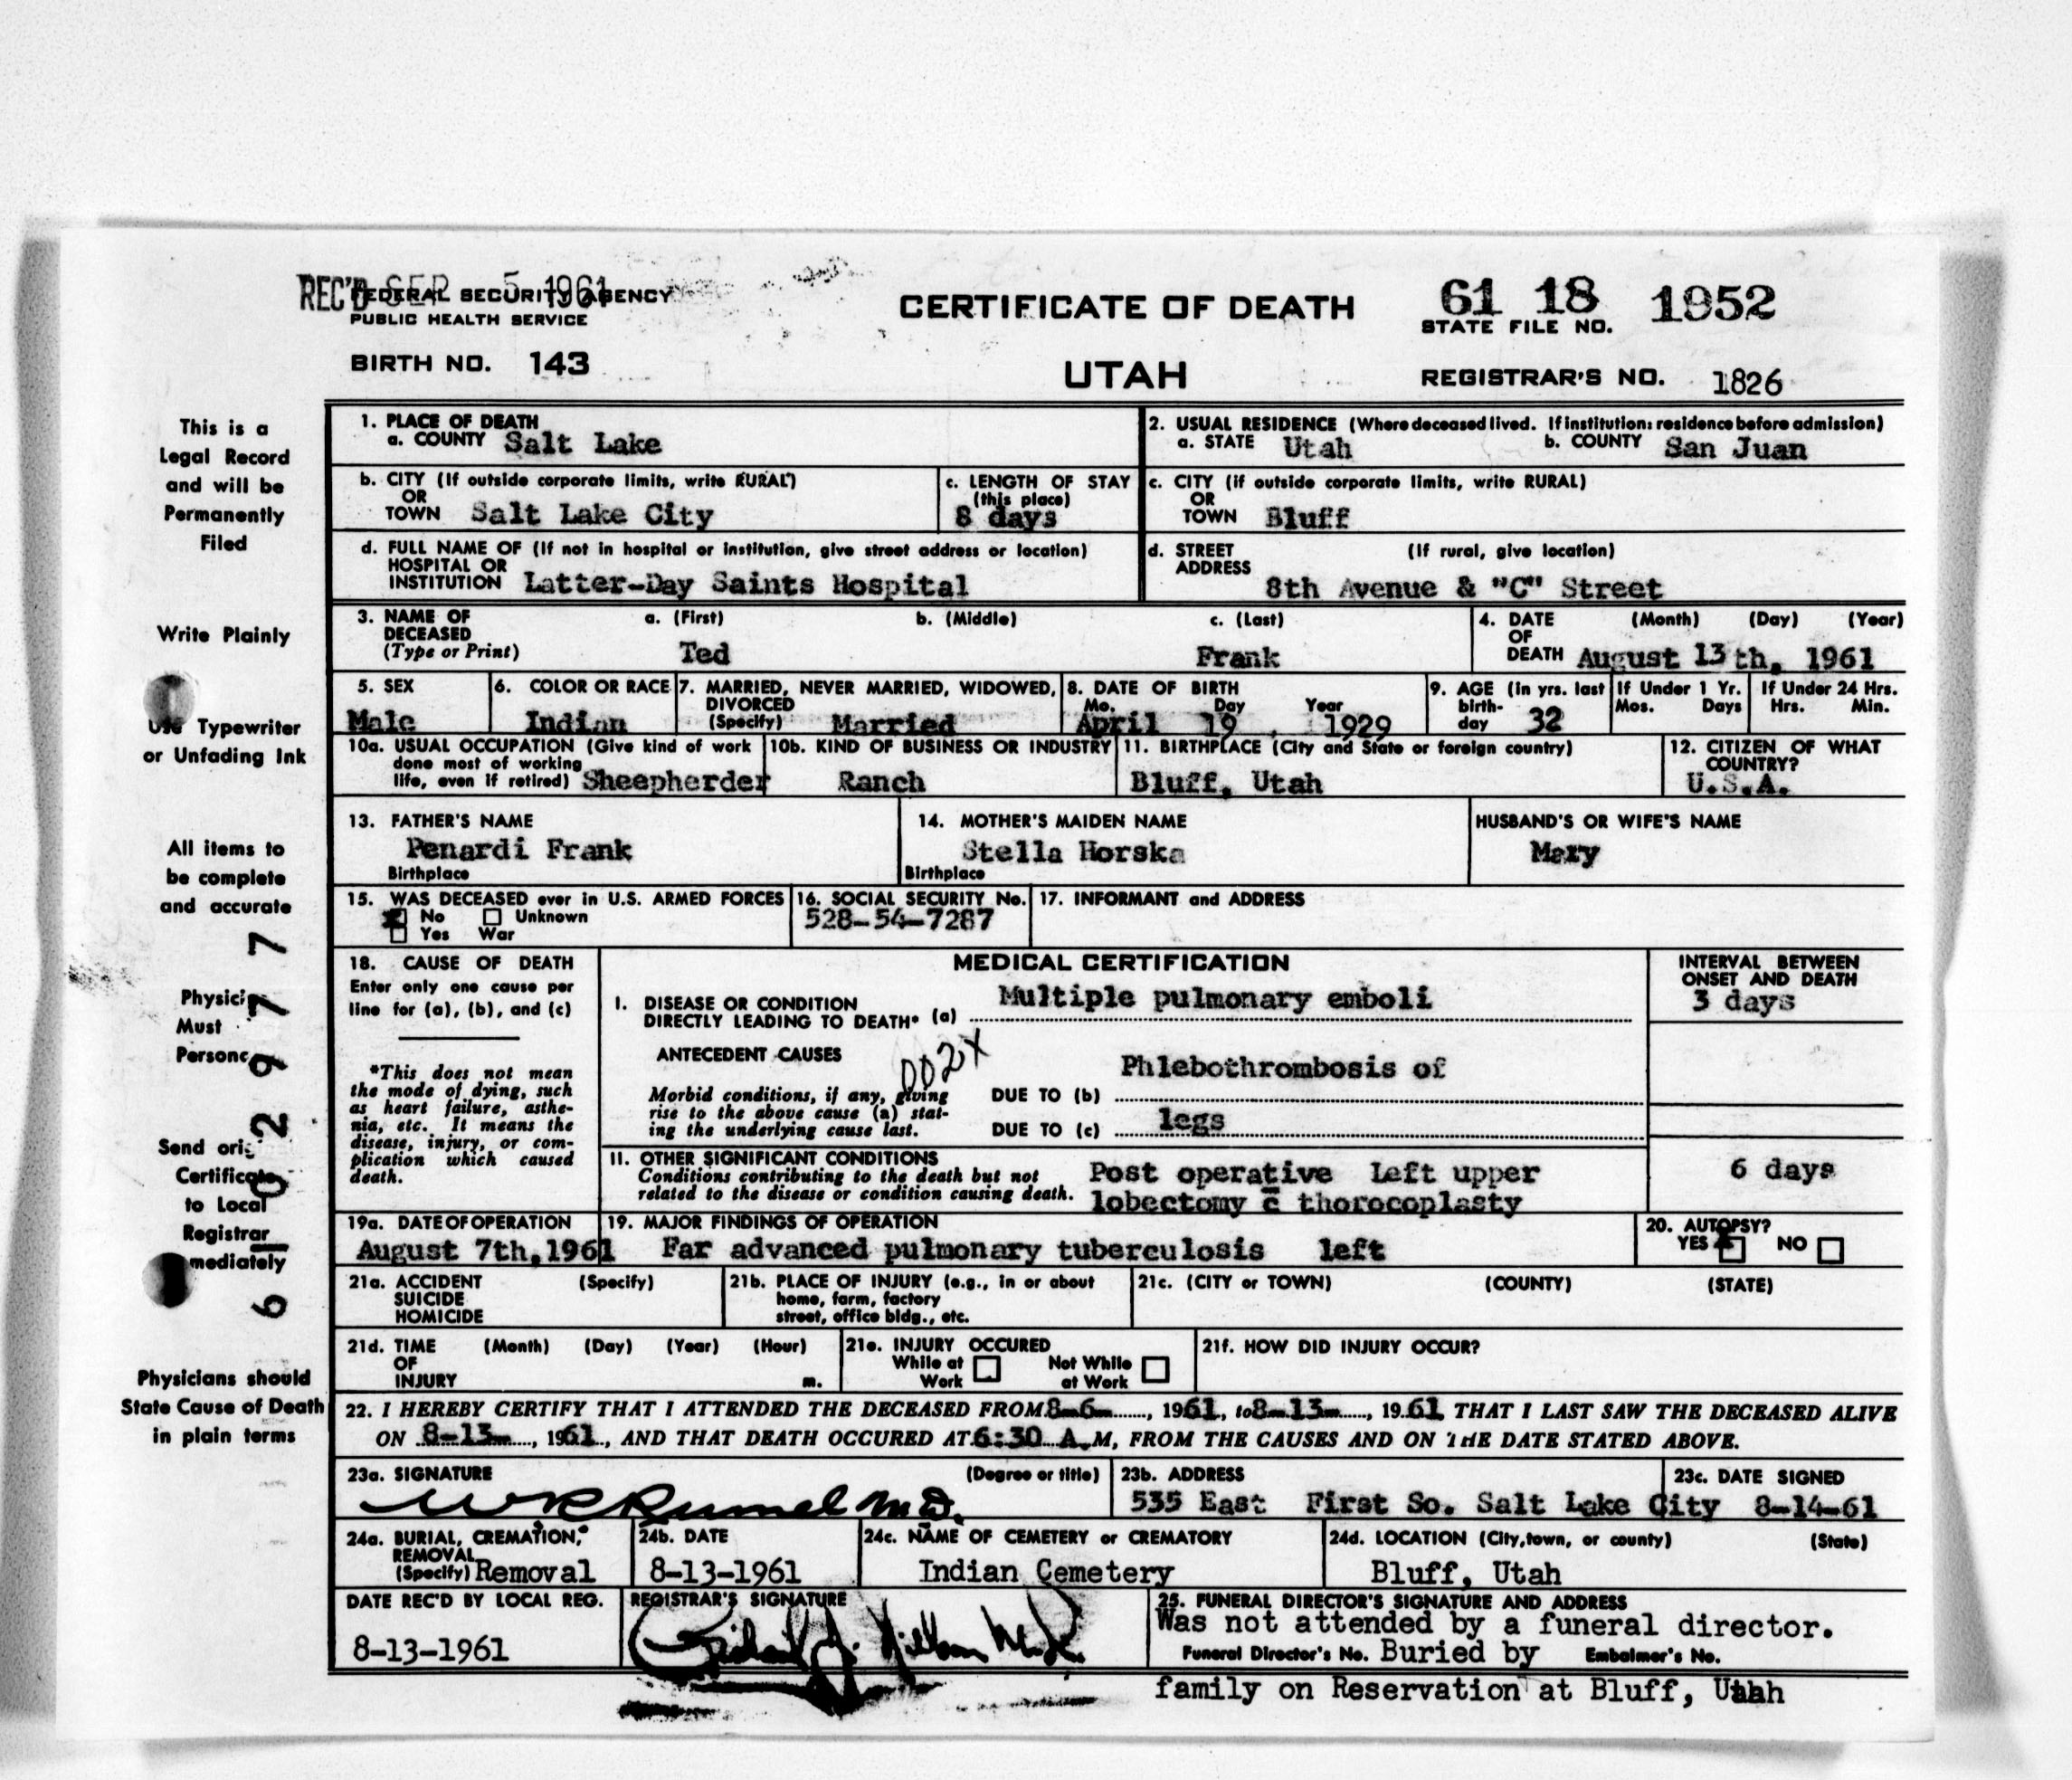 REC'D SEP 5 1961
FEDERAL SECURITY AGENCY
PUBLIC HEALTH SERVICE
CERTIFICATE OF DEATH
61 18 1952
STATE FILE NO.
BIRTH NO. 143
UTAH
REGISTRAR'S NO. 1826
This is a
Legal Record
and will be
Permanently
Filed
Write Plainly
Use Typewriter
or Unfading Ink
All items to
be complete
and accurate
Must
Send
to Local
Registrar
Physicians should
State Cause of Death
in plain terms
1. PLACE OF DEATH
a. COUNTY Salt Lake
2. USUAL RESIDENCE (Where deceased lived. If institution: residence before admission)
a. STATE Utah b. COUNTY San Juan
b. CITY (If outside corporate limits, write RURAL)
OR
TOWN Salt Lake City
c. LENGTH OF STAY
(this place)
8 days
c. CITY (if outside corporate limits, write RURAL)
OR
TOWN Bluff
d. FULL NAME OF (If not in hospital or institution, give street address or location)
HOSPITAL OR
INSTITUTION Latter-Day Saints Hospital
d. STREET (If rural, give location)
ADDRESS
8th Avenue & "C" Street
3. NAME OF a. (First) b. (Middle) c. (Last)
DECEASED
(Type or Print) Ted Frank
4. DATE (Month) (Day) (Year)
OF
DEATH August 13th, 1961
5. SEX
Male
6. COLOR OR RACE
Indian
7. MARRIED, NEVER MARRIED, WIDOWED,
DIVORCED
(Specify) Married
8. DATE OF BIRTH
Mo. Day Year
April 19, 1929
9. AGE (in yrs. last
birth-
day 32
If Under 1 Yr.
Mos. Days
If Under 24 Hrs.
Hrs. Min.
10a. USUAL OCCUPATION (Give kind of work
done most of working
life, even if retired) Sheepherder
10b. KIND OF BUSINESS OR INDUSTRY
Ranch
11. BIRTHPLACE (City and State or foreign country)
Bluff, Utah
12. CITIZEN OF WHAT
COUNTRY?
U.S.A.
13. FATHER'S NAME
Penardi Frank
Birthplace
14. MOTHER'S MAIDEN NAME
Stella Horska
Birthplace
HUSBAND'S OR WIFE'S NAME
Mary
15. WAS DECEASED ever in U.S. ARMED FORCES
No Unknown
Yes War
16. SOCIAL SECURITY No.
528-54-7287
17. INFORMANT and ADDRESS
18. CAUSE OF DEATH
Enter only one cause per
line for (a), (b), and (c)
*This does not mean
the mode of dying, such
as heart failure, asthe-
nia, etc. It means the
disease, injury, or com-
plication which caused
death.
MEDICAL CERTIFICATION
I. DISEASE OR CONDITION
DIRECTLY LEADING TO DEATH* (a) Multiple pulmonary emboli
ANTECEDENT CAUSES
002X
Morbid conditions, if any, giving
rise to the above cause (a) stat-
ing the underlying cause last.
DUE TO (b) Phlebothrombosis of
DUE TO (c) legs
INTERVAL BETWEEN
ONSET AND DEATH
3 days
II. OTHER SIGNIFICANT CONDITIONS
Conditions contributing to the death but not
related to the disease or condition causing death.
Post operative Left upper
lobectomy c̄ thorocoplasty
6 days
19a. DATE OF OPERATION
August 7th, 1961
19. MAJOR FINDINGS OF OPERATION
Far advanced pulmonary tuberculosis left
20. AUTOPSY?
YES X NO
21a. ACCIDENT (Specify)
SUICIDE
HOMICIDE
21b. PLACE OF INJURY (e.g., in or about
home, farm, factory
street, office bldg., etc.
21c. (CITY or TOWN) (COUNTY) (STATE)
21d. TIME (Month) (Day) (Year) (Hour)
OF
INJURY m.
21e. INJURY OCCURED
While at Not While
Work at Work
21f. HOW DID INJURY OCCUR?
22. I HEREBY CERTIFY THAT I ATTENDED THE DECEASED FROM 8-6-, 1961, to 8-13-, 1961 THAT I LAST SAW THE DECEASED ALIVE
ON 8-13-, 1961, AND THAT DEATH OCCURED AT 6:30 A.M, FROM THE CAUSES AND ON THE DATE STATED ABOVE.
23a. SIGNATURE (Degree or title)
W R Rumel M.D.
23b. ADDRESS
535 East First So. Salt Lake City
23c. DATE SIGNED
8-14-61
24a. BURIAL, CREMATION,
REMOVAL
(Specify) Removal
24b. DATE
8-13-1961
24c. NAME OF CEMETERY or CREMATORY
Indian Cemetery
24d. LOCATION (City, town, or county) (State)
Bluff, Utah
DATE REC'D BY LOCAL REG.
8-13-1961
REGISTRAR'S SIGNATURE
25. FUNERAL DIRECTOR'S SIGNATURE AND ADDRESS
Was not attended by a funeral director.
Funeral Director's No. Buried by Embalmer's No.
family on Reservation at Bluff, Utah